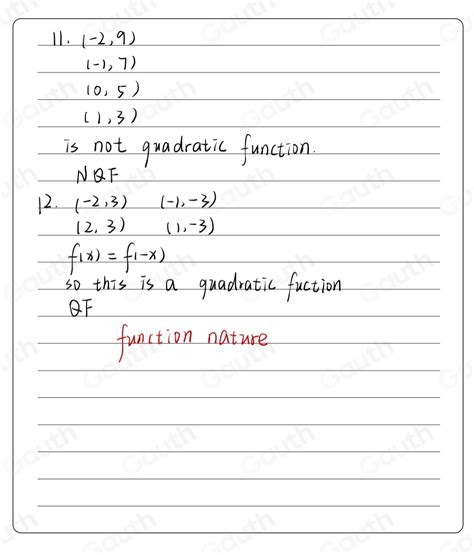 11. (-2,9)
(-1,7)
(0,5)
(1,3)
is not quadratic function.
NQF
12. (-2,3) (-1,-3)
(2,3) (1,-3)
f(x) = f(-x)
so this is a quadratic fuction
QF
function nature